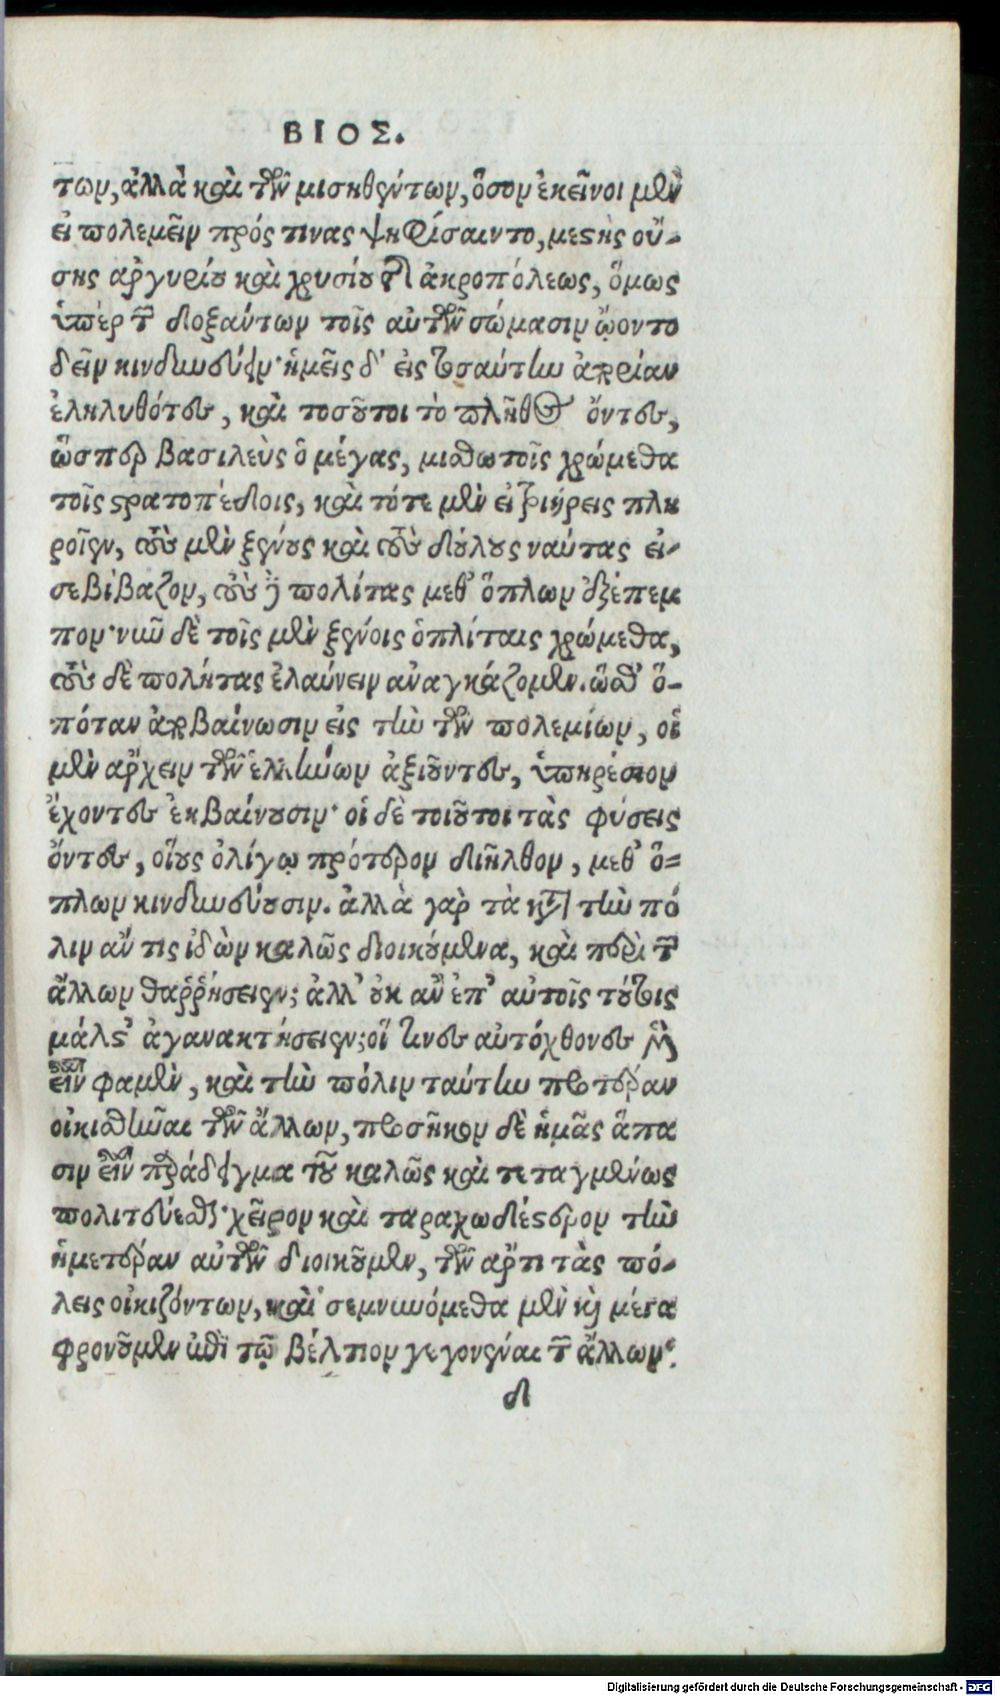 ΒΙΟΣ.
των, ἀλλὰ καὶ τῶν μισηθέντων, ὅσον ἐκεῖνοι μὲν
εἰ πολεμεῖν πρός τινας ψηφίσαιντο, μεστῆς οὔ-
σης ἀργυρίου καὶ χρυσίου τῆς ἀκροπόλεως, ὅμως
ὑπὲρ τῶν δοξάντων τοῖς αὑτῶν σώμασιν ᾤοντο
δεῖν κινδυνεύειν· ἡμεῖς δ' εἰς τοσαύτην ἀπορίαν
ἐληλυθότες, καὶ τοσοῦτοι τὸ πλῆθος ὄντες,
ὥσπερ βασιλεὺς ὁ μέγας, μισθωτοῖς χρώμεθα
τοῖς στρατοπέδοις, καὶ τότε μὲν εἰ τριήρεις πλη
ροῖεν, τοὺς μὲν ξένους καὶ τοὺς δούλους ναύτας εἰ-
σεβίβαζον, τοὺς δὲ πολίτας μεθ' ὅπλων ἐξέπεμ
πον· νῦν δὲ τοῖς μὲν ξένοις ὁπλίταις χρώμεθα,
τοὺς δὲ πολήτας ἐλαύνειν ἀναγκάζομεν. ὥσθ' ὁ-
πόταν ἀποβαίνωσιν εἰς τὴν τῶν πολεμίων, οἱ
μὲν ἄρχειν τῶν ἑλλήνων ἀξιοῦντες, ὑπηρέσιον
ἔχοντες ἐκβαίνουσιν· οἱ δὲ τοιοῦτοι τὰς φύσεις
ὄντες, οἵους ὀλίγῳ πρότερον διῆλθον, μεθ' ὅ-
πλων κινδυνεύουσιν. ἀλλὰ γὰρ τὰ κατὰ τὴν πό
λιν ἄν τις ἰδὼν καλῶς διοικούμενα, καὶ περὶ τῶν
ἄλλων θαῤῥήσειεν; ἀλλ' οὐκ ἂν ἐπ' αὐτοῖς τούτοις
μάλιστ' ἀγανακτήσειεν; οἵ τινες αὐτόχθονες μὲν
εἶναι φαμὲν, καὶ τὴν πόλιν ταύτην προτέραν
οἰκισθῆναι τῶν ἄλλων, προσῆκον δὲ ἡμᾶς ἅπα
σιν εἶναι παράδειγμα τοῦ καλῶς καὶ τεταγμένως
πολιτεύεσθαι· χεῖρον καὶ ταραχωδέστερον τὴν
ἡμετέραν αὐτῶν διοικοῦμεν, τῶν ἄρτι τὰς πό-
λεις οἰκιζόντων, καὶ σεμνυνόμεθα μὲν καὶ μέγα
φρονοῦμεν ἐπὶ τῷ βέλτιον γεγονέναι τῶν ἄλλων·
δ
Digitalisierung gefördert durch die Deutsche Forschungsgemeinschaft - DFG